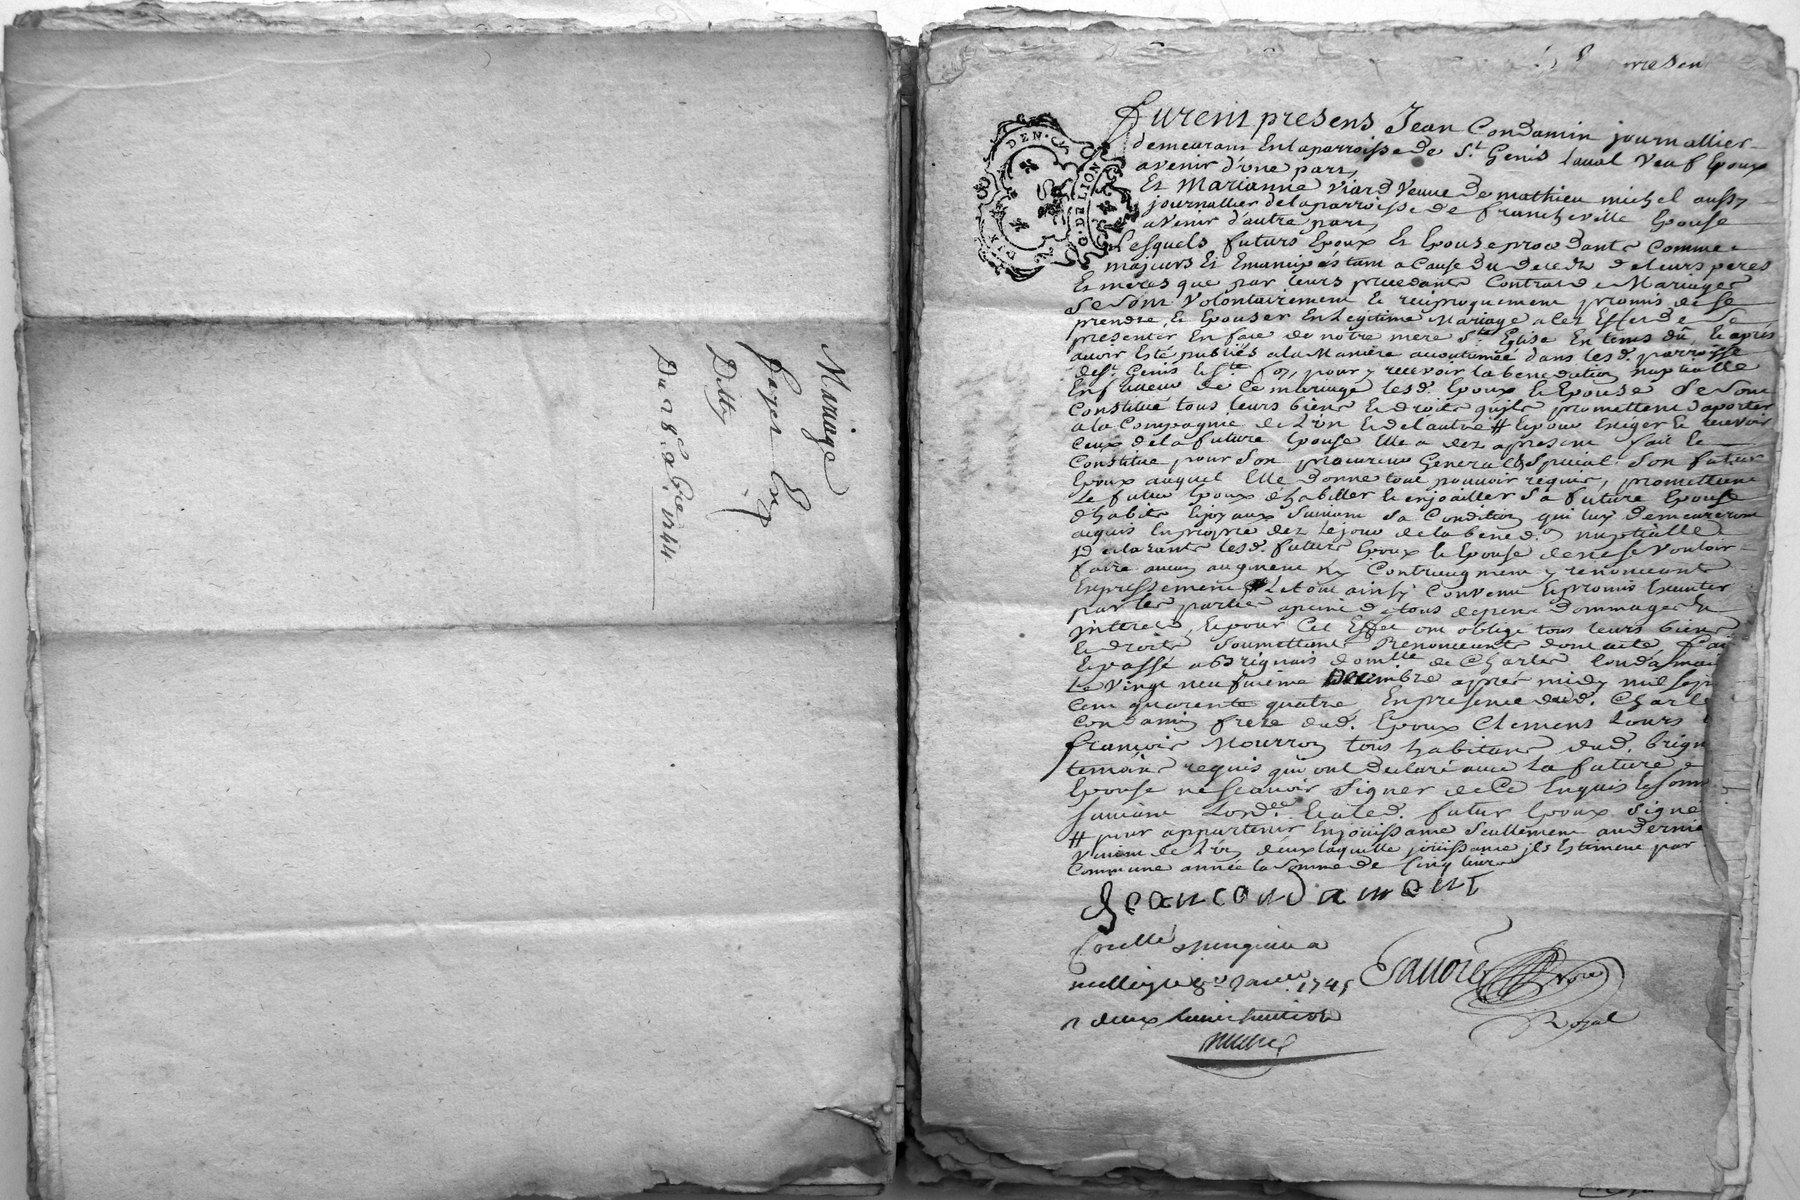 Mariage
Du 28. xbre 1744
DEN.
G. DE LION
Furent presens Jean Condamin journallier
demeurant En la parroisse de St. Genis Laual Veuf Epoux
avenir d'Vne part,
Et Marianne Viard Veuve de mathieu michel aussy
journallier de la parroisse de francheville Epouse
avenir d'autre part
Lesquels futurs Epoux Et Epouse procedants Comme
majeurs Et Emancipés tant a Cause du decedz de leurs peres
Et meres que par leurs precedants Contrat de Mariages
Se sont Volontairement Et reciproquement promis de se
prendre, Et Epouser En Legitime Mariage a Cet Effet de se
presenter En face de notre mere Ste Eglise En tems dû, Et aprés
auoir Esté publiés a la Maniere accoutumée dans lesd. parroisse
de St. Genis Et Ste foy, pour y recevoir la benediction nuptialle
En faueur de Ce mariage lesd. Epoux Et Epouse Se sont
Constitué tous leurs biens Et droits qu'ils promettent d'aporter
a la Compagnie de L'Vn Et de l'autre # Et pour Exiger Et recevoir
Ceux de la future Epouse Elle a dez apresent fait Et
Constitué pour Son procureur General & Special Son futur
Epoux auquel Elle donne tout pouvoir requis, promettant
Le futur Epoux d'habiller Et enjoailler Sa future Epouse
d'habits Et joyaux Suivant Sa Condition qui luy demeureront
acquis En propre dez Le jour de la bened.on nuptialle
Declarants lesd. futurs Epoux Et Epouse de ne se Vouloir
faire aucun augment ny Contreaugment y renonceant
Expressement, Le tout ainsy Convenu Et promis Executer
par les parties a peine de tous depens dommages Et
interets, Et pour Cet Effet ont obligé tous leurs biens
Et droits Soumettants Renonceants dont acte, fai
Et passé a Brignais domlle de Charles Condamin
Le Vingt neufuieme Decembre apres midy mil Sept
Cent quarente quatre, En presence dud. Charle
Condamin frere dud. Epoux Clement Lours
françois Mourron tous habitans dud. Brign
temoins requis qui ont declaré auec La future
Epouse ne Scauoir Signer de Ce Enquis Et Somm
Suivant Lord.ce Et a led. futur Epoux Signé
# pour appartenir En jouissance Seullement au dernie
Viuant de L'Vn deux laquelle jouissance ils Estiment par
Commune année la Somme de Cinq liures
Jean condament
1745
Royal